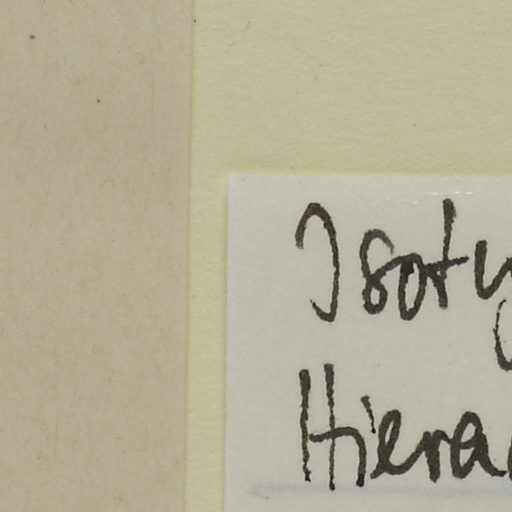 Isoty
Hiera